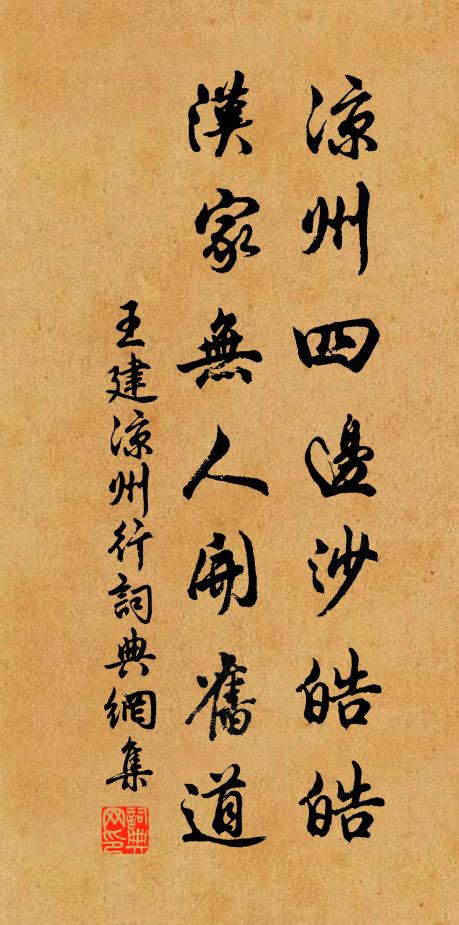 凉州四邊沙皓皓
漢家無人開舊道
王建凉州行詞典網集
詞典网印